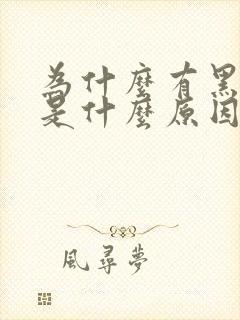 為什麼有黑
是什麼原因
風尋夢